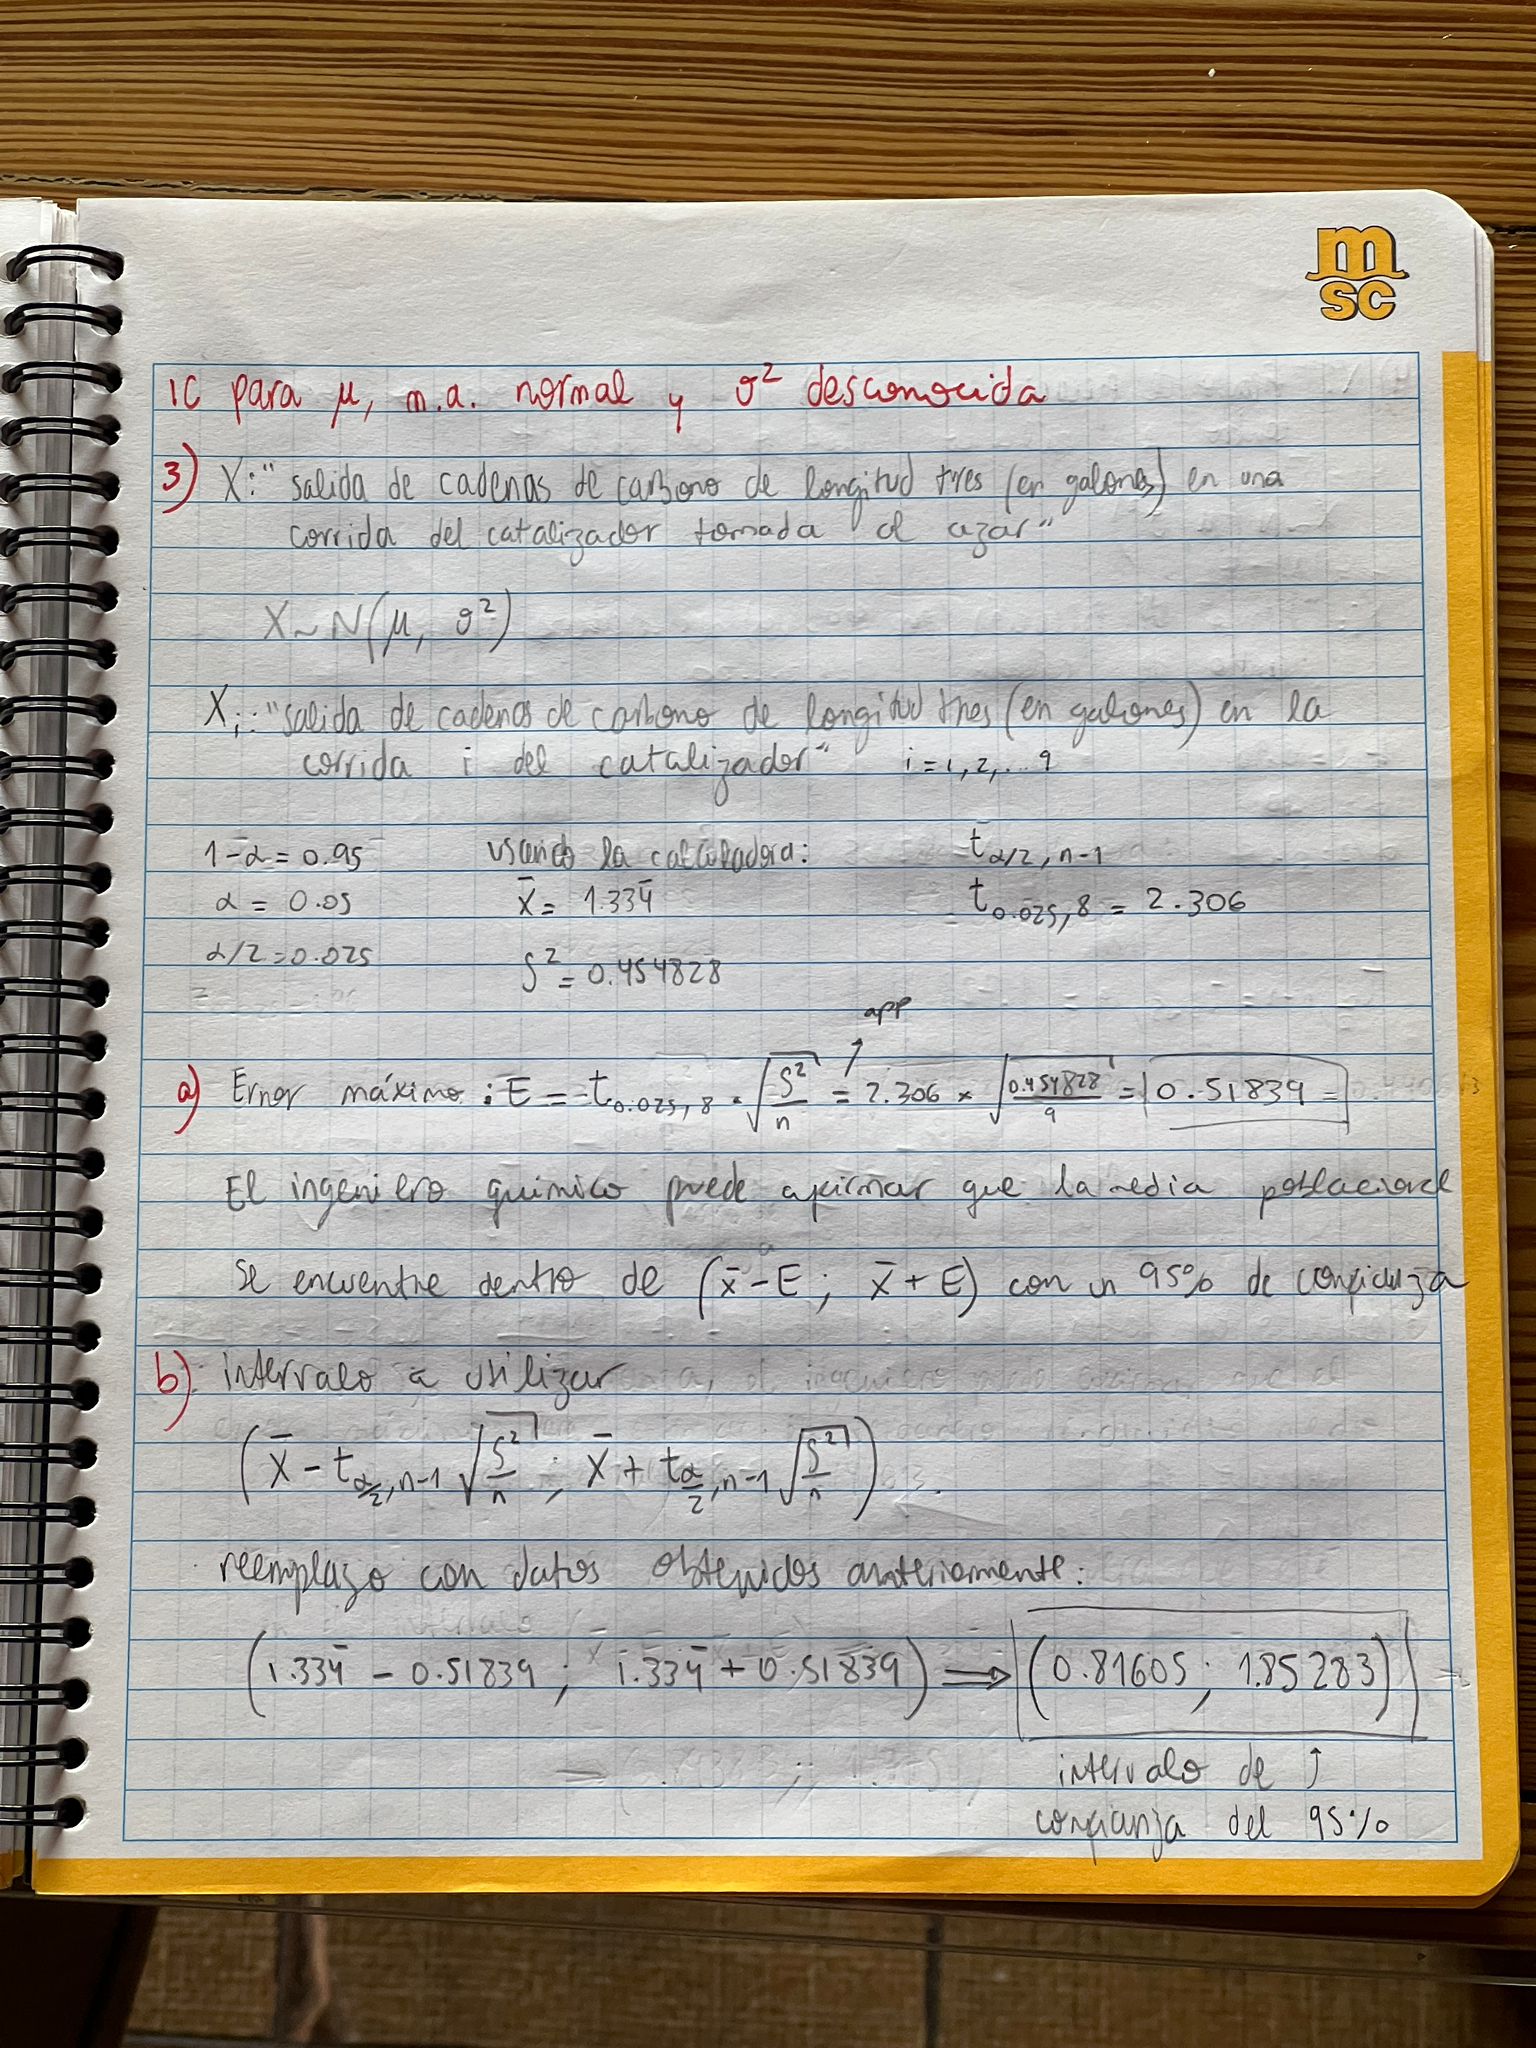 m
sc
IC para μ, m.a. normal y σ² desconocida
3) X: "salida de cadenas de carbono de longitud tres (en galones) en una
corrida del catalizador tomada al azar"
X ~ N(μ, σ²)
Xᵢ: "salida de cadenas de carbono de longitud tres (en galones) en la
corrida i del catalizador" i = 1, 2, ... 9
1-α = 0.95 usando la calculadora: t α/2, n-1
α = 0.05 x̄ = 1.334̄ t 0.025, 8 = 2.306
α/2 = 0.025 S² = 0.454828
app
a) Error máximo: E = t 0.025, 8 · √(S²/n) = 2.306 × √(0.454828/9) = 0.51839
El ingeniero químico puede afirmar que la media poblacional
se encuentre dentro de (x̄ - E ; x̄ + E) con un 95% de confianza
b) intervalo a utilizar
(X̄ - t α/2, n-1 √(S²/n) ; X̄ + t α/2, n-1 √(S²/n))
reemplazo con datos obtenidos anteriormente:
(1.334̄ - 0.51839 ; 1.334̄ + 0.51839) ⟹ (0.81605 ; 1.85283)
intervalo de ↑
confianza del 95%